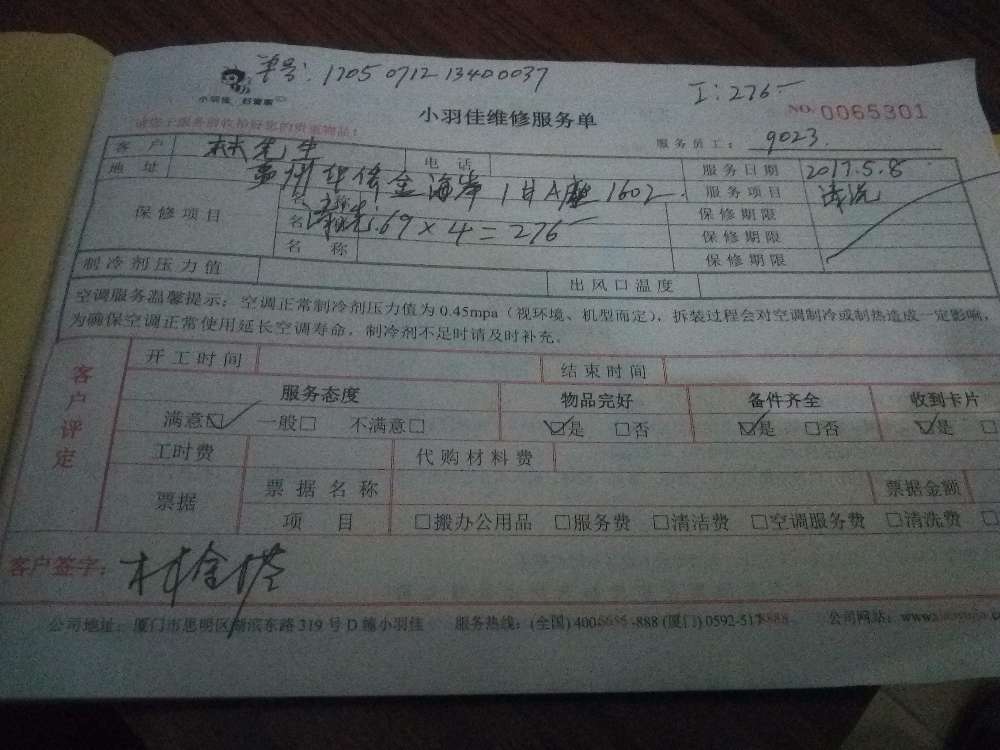 单号: 1705071213400037
I: 276-
小羽佳 好管家
小羽佳维修服务单
NO. 0065301
请您于服务前收拾好您的贵重物品!
服务员工: 9023
客户 林先生 电话 服务日期 2017.5.8
地址 金海岸 1#A座 1602 服务项目 清洗
保修项目 名称 69×4=276 保修期限
保修期限
名称 保修期限
制冷剂压力值 出风口温度
空调服务温馨提示: 空调正常制冷剂压力值为0.45mpa(视环境、机型而定), 拆装过程会对空调制冷或制热造成一定影响,
为确保空调正常使用延长空调寿命, 制冷剂不足时请及时补充。
客户评定
开工时间 结束时间
服务态度 物品完好 备件齐全 收到卡片
满意☑ 一般□ 不满意□ ☑是 □否 ☑是 □否 ☑是 □
工时费 代购材料费
票据 票据名称 票据金额
项目 □搬办公用品 □服务费 □清洁费 □空调服务费 □清洗费 □
客户签字:
公司地址: 厦门市思明区湖滨东路319号D幢小羽佳 服务热线: (全国) 4006695-888 (厦门) 0592-5178888 公司网站: